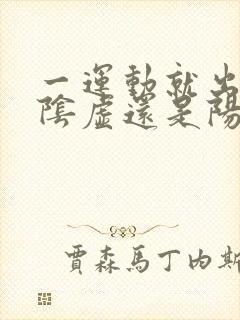 一運動就出
陰虛還是陽
賈森馬丁內斯